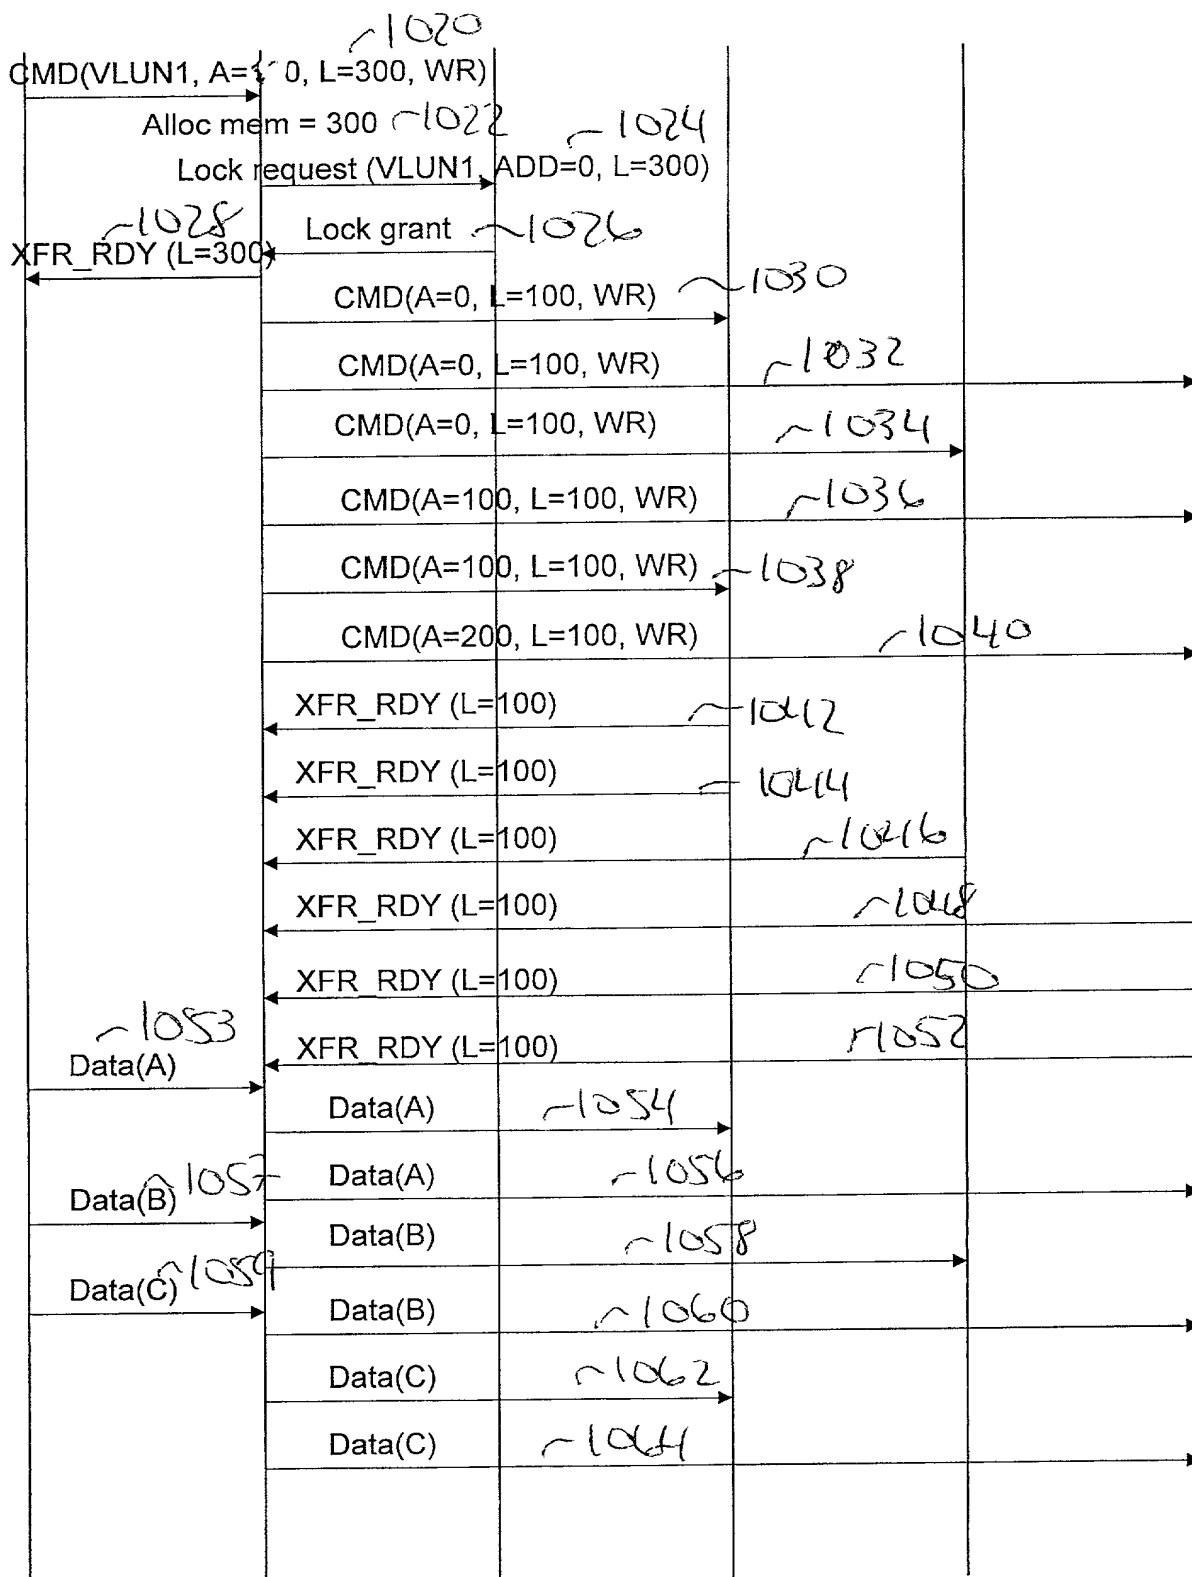 ~1020
CMD(VLUN1, A= 0, L=300, WR)
Alloc mem = 300 ~1022
~1024
Lock request (VLUN1, ADD=0, L=300)
~1028
Lock grant ~1026
XFR_RDY (L=300)
CMD(A=0, L=100, WR) ~1030
CMD(A=0, L=100, WR) ~1032
CMD(A=0, L=100, WR) ~1034
CMD(A=100, L=100, WR) ~1036
CMD(A=100, L=100, WR) ~1038
CMD(A=200, L=100, WR) ~1040
XFR_RDY (L=100) ~1042
XFR_RDY (L=100) ~1044
XFR_RDY (L=100) ~1046
XFR_RDY (L=100) ~1048
XFR_RDY (L=100) ~1050
~1053
XFR_RDY (L=100) ~1052
Data(A)
Data(A) ~1054
Data(A) ~1056
Data(B) ~1057
Data(B) ~1058
Data(C) ~1059
Data(B) ~1060
Data(C) ~1062
Data(C) ~1064